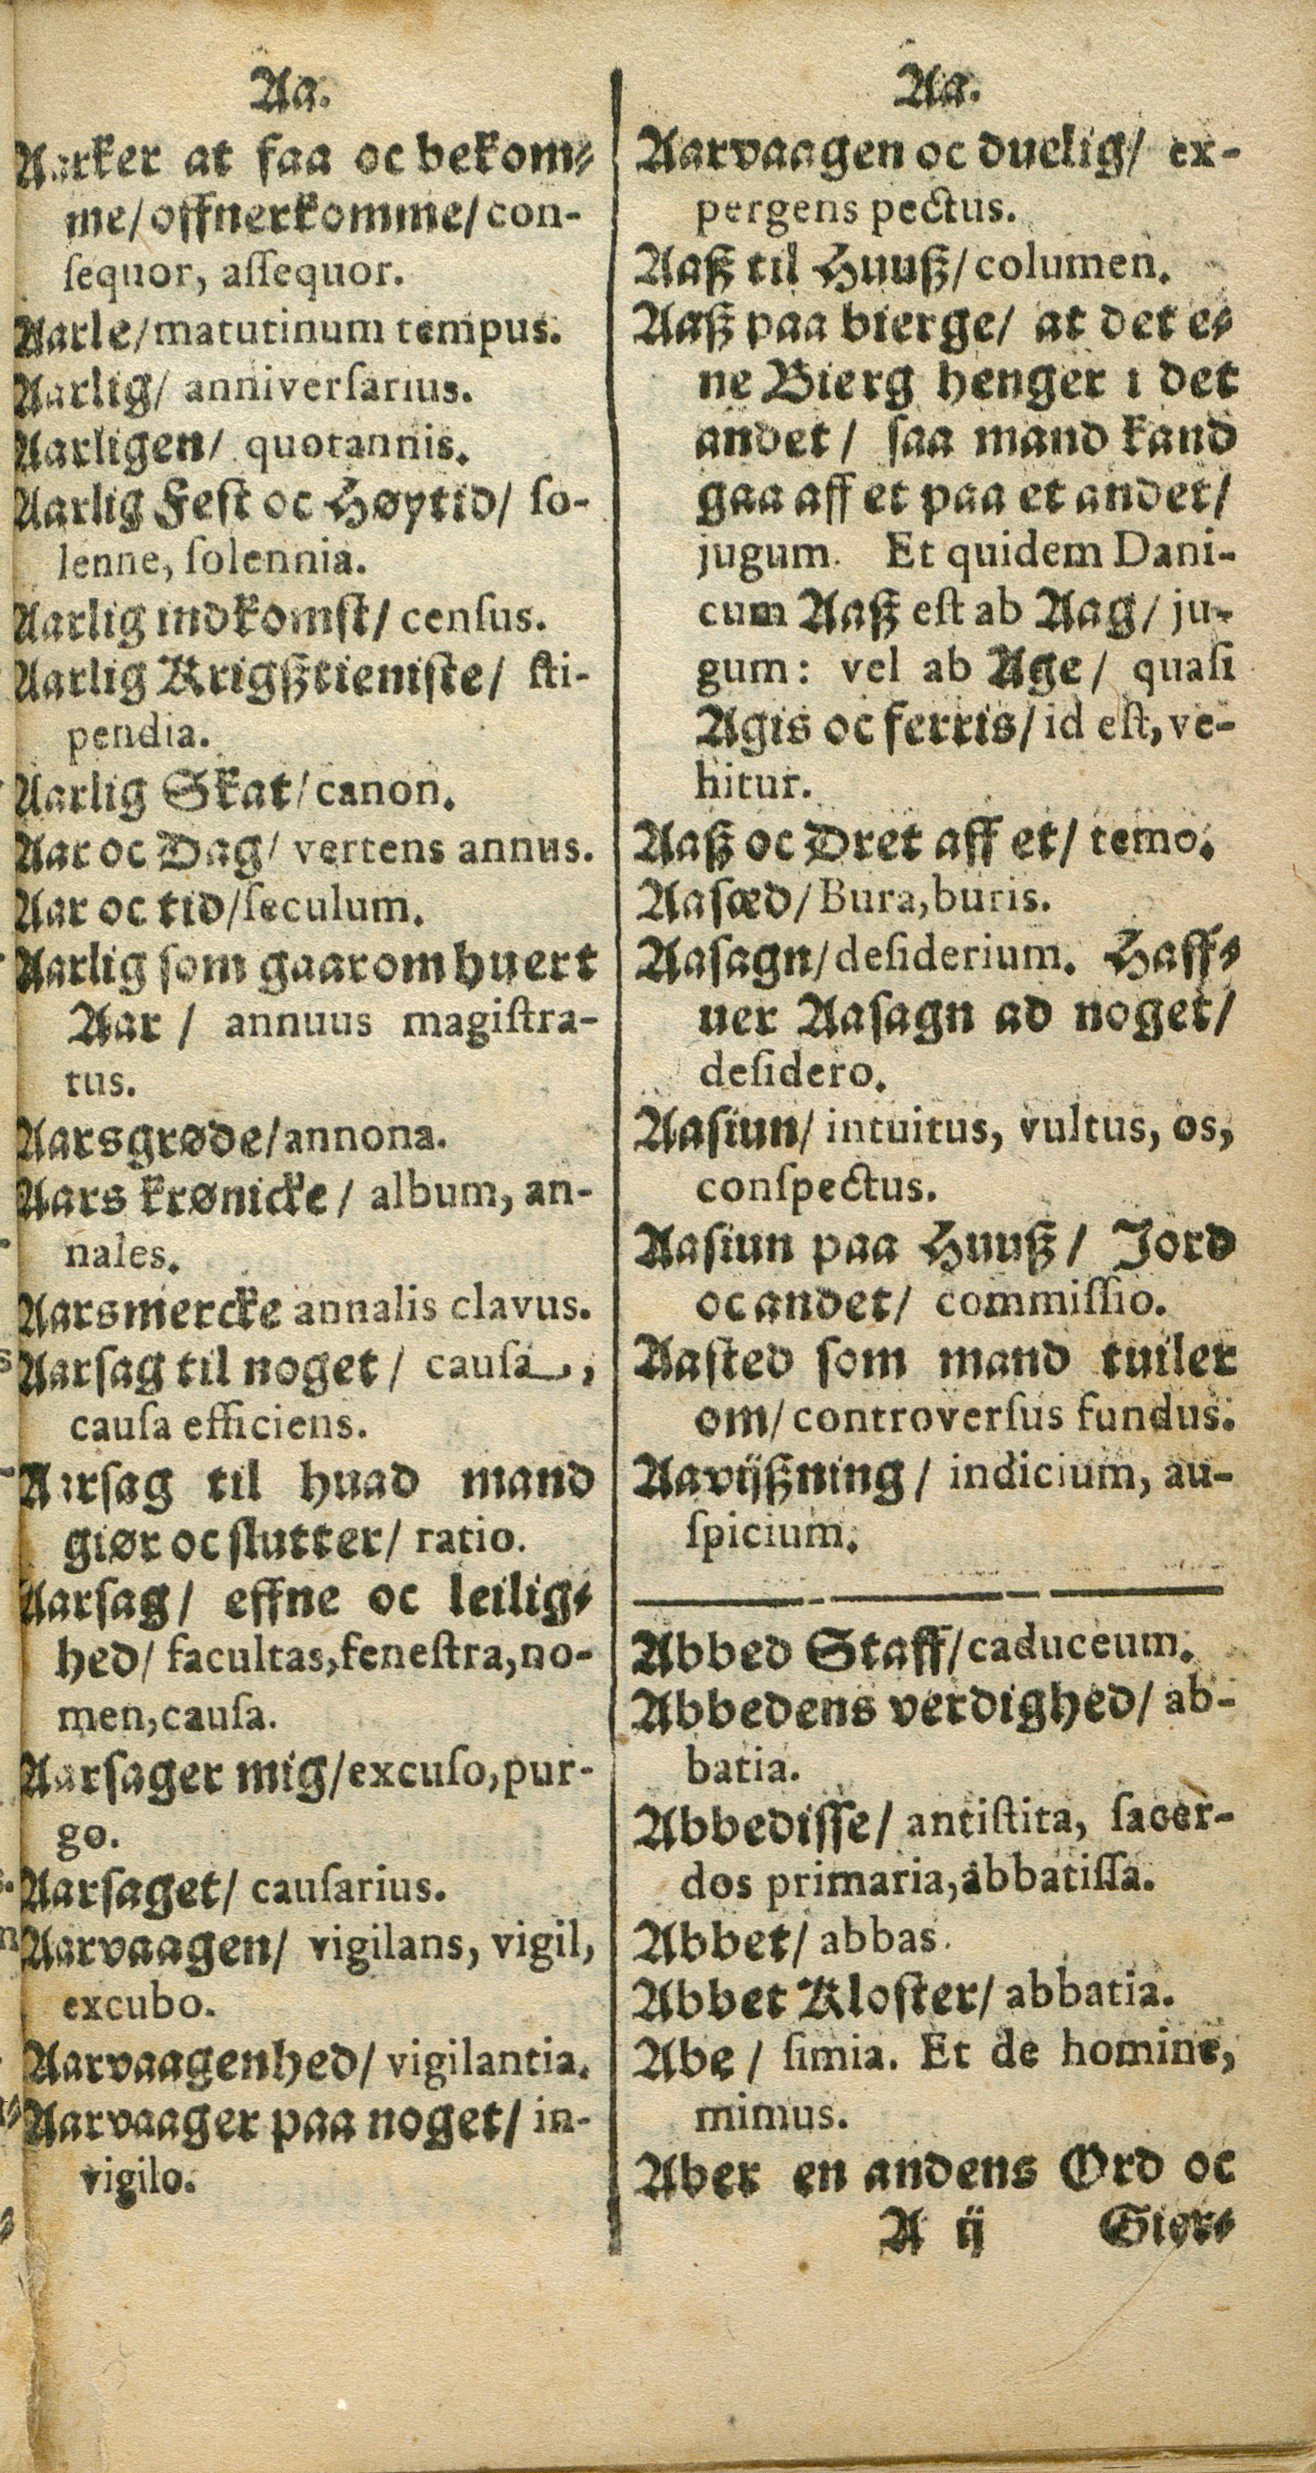 Aa.
Aarker at faa oc bekom⸗
me/ offnerkomme/ con-
ſequor, aſſequor.
Aarle/ matutinum tempus.
Aarlig/ anniverſarius.
Aarligen/ quotannis.
Aarlig Feſt oc Høytid/ ſo-
lenne, ſolennia.
Aarlig indkomſt/ cenſus.
Aarlig Krigßtieniſte/ ſti-
pendia.
Aarlig Skat/ canon.
Aar oc Dag/ vertens annus.
Aar oc tid/ ſeculum.
Aarlig ſom gaar om huert
Aar / annuus magiſtra-
tus.
Aarsgrøde/ annona.
Aars krønicke / album, an-
nales.
Aarsmercke annalis clavus.
Aarſag til noget / cauſa,
cauſa efficiens.
Aarſag til huad mand
giør oc ſlutter/ ratio.
Aarſag/ effne oc leilig⸗
hed/ facultas, feneſtra, no-
men, cauſa.
Aarſager mig/ excuſo, pur-
go.
Aarſaget/ cauſarius.
Aarvaagen/ vigilans, vigil,
excubo.
Aarvaagenhed/ vigilantia.
Aarvaager paa noget/ in-
vigilo.
Aa.
Aarvaagen oc duelig/ ex-
pergens pectus.
Aaß til Huuß/ columen.
Aaß paa bierge/ at det e⸗
ne Bierg henger i det
andet / ſaa mand kand
gaa aff et paa et andet/
jugum. Et quidem Dani-
cum Aaß eſt ab Aag/ ju-
gum: vel ab Age/ quaſi
Agis oc ferris/ id eſt, ve-
hitur.
Aaß oc Dret aff et/ temo.
Aaſæd/ Bura, buris.
Aaſagn/ deſiderium. Haff⸗
uer Aaſagn ad noget/
deſidero.
Aaſiun/ intuitus, vultus, os,
conſpectus.
Aaſiun paa Huuß / Jord
oc andet/ commiſſio.
Aaſted ſom mand tuiler
om/ controverſus fundus.
Aavijßning/ indicium, au-
ſpicium.
Abbed Staff/ caduceum.
Abbedens verdighed/ ab-
batia.
Abbediſſe/ antiſtita, ſacer-
dos primaria, abbatiſſa.
Abbet/ abbas.
Abbet Kloſter/ abbatia.
Abe / ſimia. Et de homine,
mimus.
Aber en andens Ord oc
A ij Gier⸗